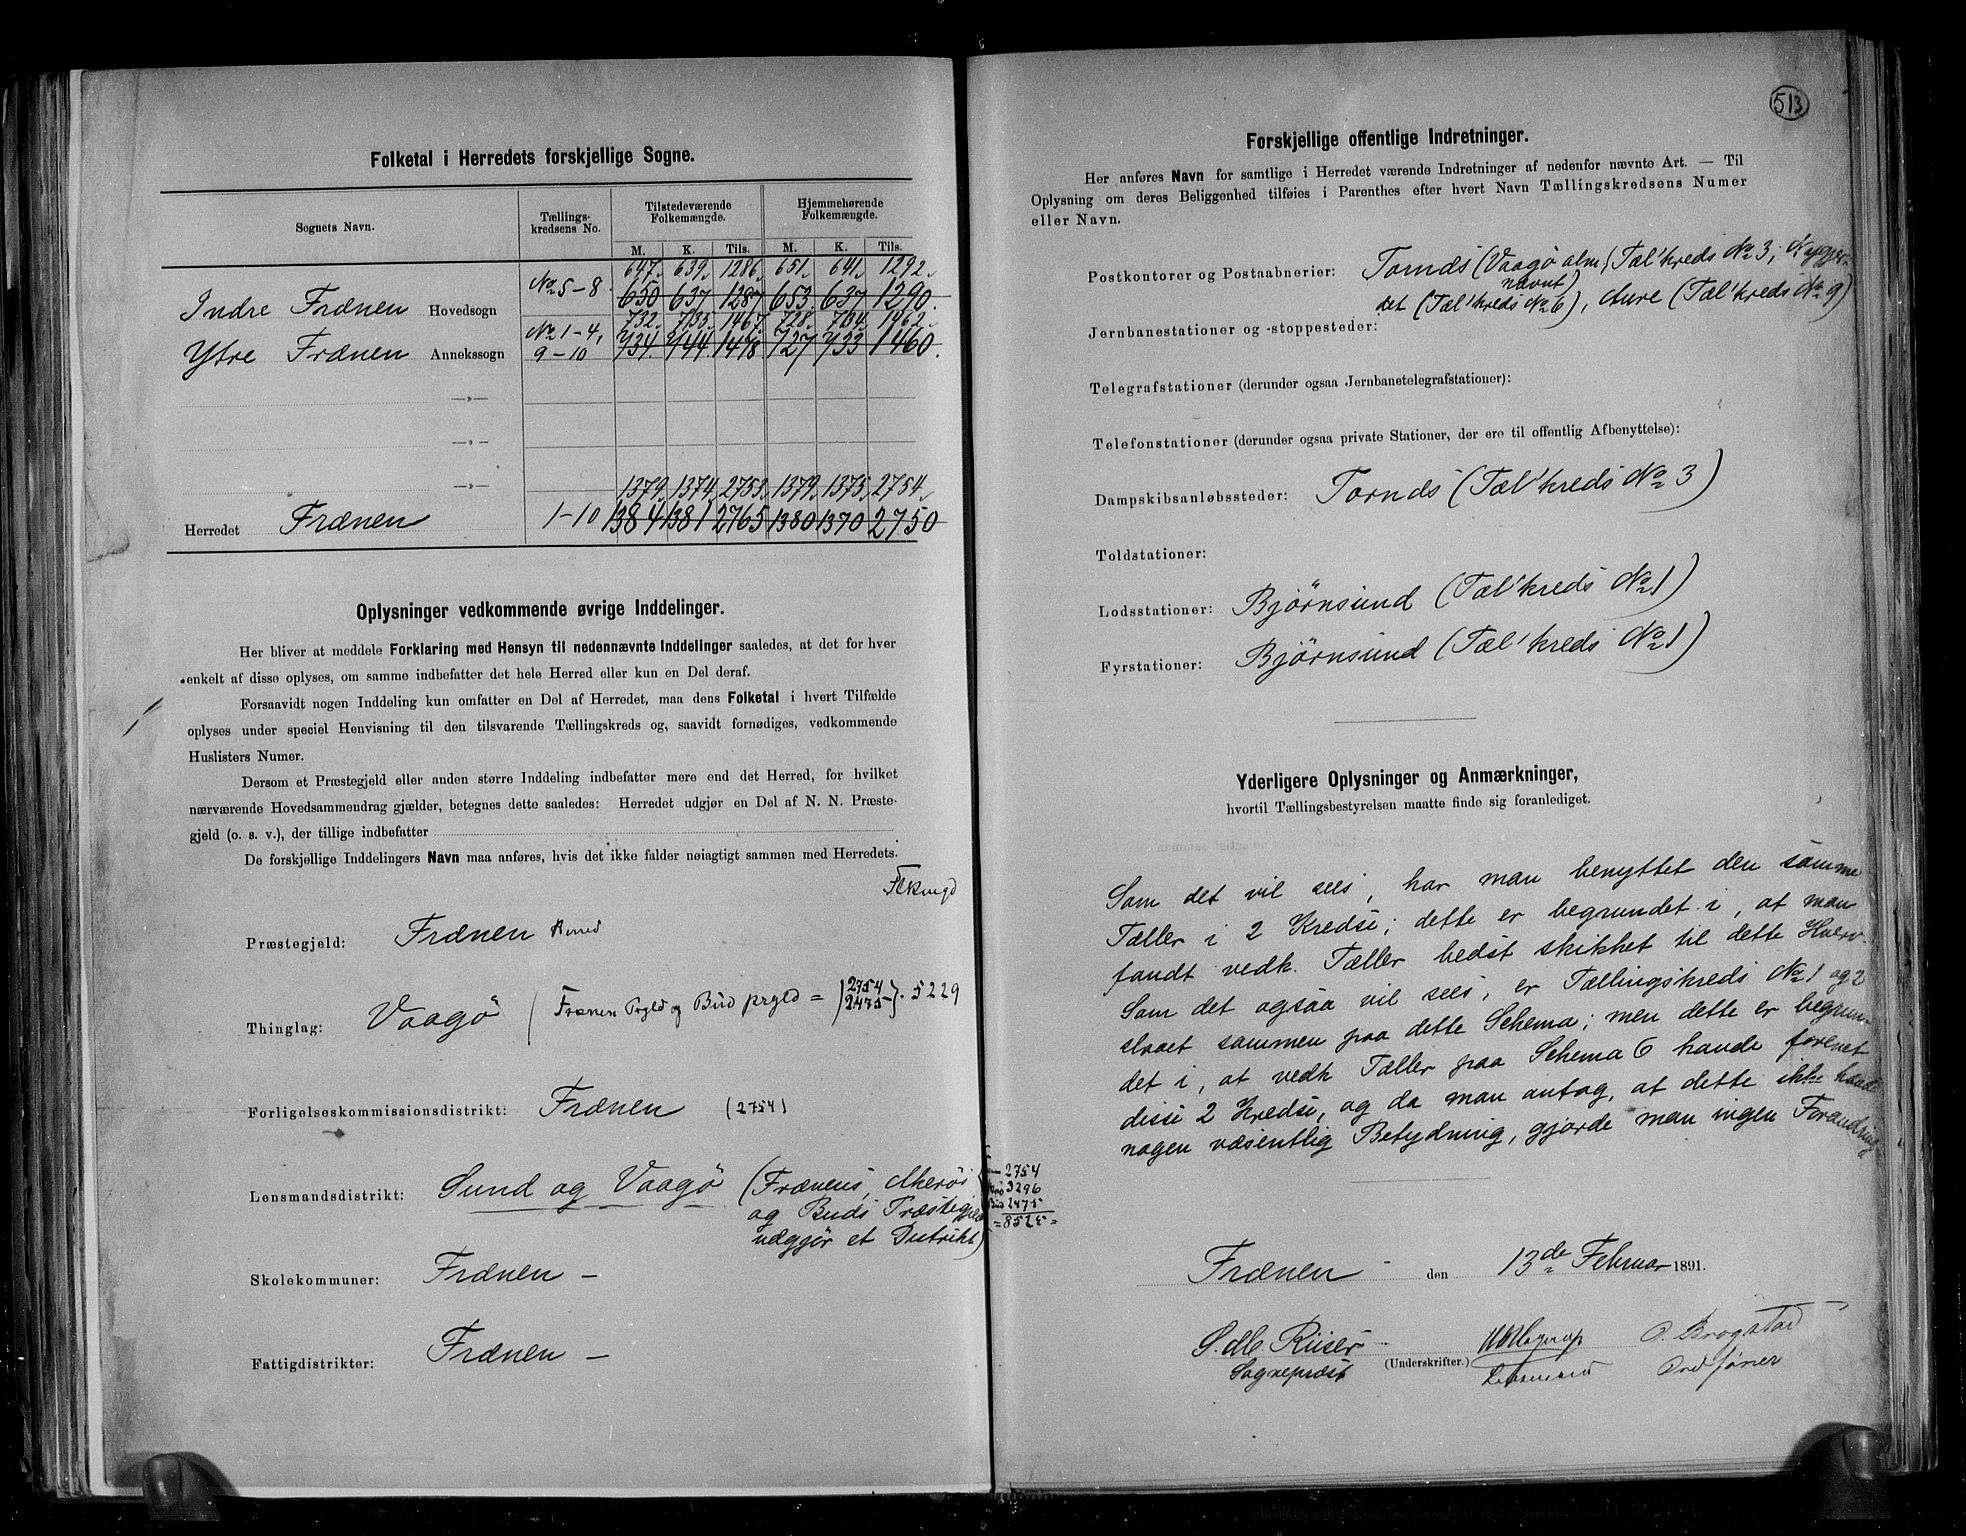 Folketal i Herredets forskjellige Sogne.
Sognets Navn.
Tællings-
kredsens No.
Tilstedeværende
Folkemængde.
Hjemmehørende
Folkemængde.
M. K. Tils. M. K. Tils.
647. 639. 1286. 651. 641. 1292.
Indre Frænen Hovedsogn No 5-8. 650 637 1287 653 637 1290.
732. 735. 1467. 728. 734. 1462.
Ytre Frænen Annekssogn No 1-4, 9-10 734 744 1478 727 733 1460.
—»—
—»—
—»—
1379. 1374. 2753. 1379. 1375. 2754.
Herredet Frænen 1-10 1384 1381 2765 1380 1370 2750
Oplysninger vedkommende øvrige Inddelinger.
Her bliver at meddele Forklaring med Hensyn til nedennævnte Inddelinger saaledes, at det for hver
enkelt af disse oplyses, om samme indbefatter det hele Herred eller kun en Del deraf.
Forsaavidt nogen Inddeling kun omfatter en Del af Herredet, maa dens Folketal i hvert Tilfælde
oplyses under speciel Henvisning til den tilsvarende Tællingskreds og, saavidt fornødiges, vedkommende
Huslisters Numer.
Dersom et Præstegjeld eller anden større Inddeling indbefatter mere end det Herred, for hvilket
nærværende Hovedsammendrag gjælder, betegnes dette saaledes: Herredet udgjør en Del af N. N. Præste-
gjeld (o. s. v.), der tillige indbefatter
De forskjellige Inddelingers Navn maa anføres, hvis det ikke falder nøiagtigt sammen med Herredets.
Præstegjeld: Frænen Herred
Thinglag: Vaagö (Frænen Prgld og Bud prgld = 2754 2475 } 5229
Forligelseskommissionsdistrikt: Frænen (2754)
Lensmandsdistrikt: Sund og Vaagö (Frænens, Akerös
og Buds Præstegjeld
udggjör et Distrikt)
2754
3296
Bud 2475
= 8525 =
Skolekommuner: Frænen —
Fattigdistrikter: Frænen —
513
Forskjellige offentlige Indretninger.
Her anføres Navn for samtlige i Herredet værende Indretninger af nedenfor nævnte Art. — Til
Oplysning om deres Beliggenhed tilføies i Parenthes efter hvert Navn Tællingskredsens Numer
eller Navn.
Postkontorer og Postaabnerier: Tornds (Vaagö alm. navnt) Tæl'kreds No 3;
det (Tæl'kreds No 6), Aure (Tæl'kreds No 9)
Jernbanestationer og -stoppesteder:
Telegrafstationer (derunder ogsaa Jernbanetelegrafstationer):
Telefonstationer (derunder ogsaa private Stationer, der ere til offentlig Afbenyttelse):
Dampskibsanløbssteder: Tornds (Tæl'kreds No 3)
Toldstationer:
Lodsstationer: Björnsund (Tæl'kreds No 1)
Fyrstationer: Björnsund (Tæl'kreds No 1)
Yderligere Oplysninger og Anmærkninger,
hvortil Tællingsbestyrelsen maatte finde sig foranlediget.
Som det vil sees, har man benyttet den samme
Tæller i 2 Kredse; dette er begrundet i, at man
fandt vedk. Tæller bedst skikket til dette Hverv.
Som det ogsaa vil sees, er Tællingskreds No 1 og 2
slaaet sammen paa dette Schema; men dette er begrun-
det i, at vedk Tæller paa Schema 6 havde forenet
disse 2 Kredse, og da man antog, at dette ikke havde
nogen væsentlig Betydning, gjorde man ingen Forandring
Frænen den 13de Februar 1891.
S. M. Riiser
Sogneprest
(Underskrifter.)
Lensmand
O. Brogstad
Ordförer